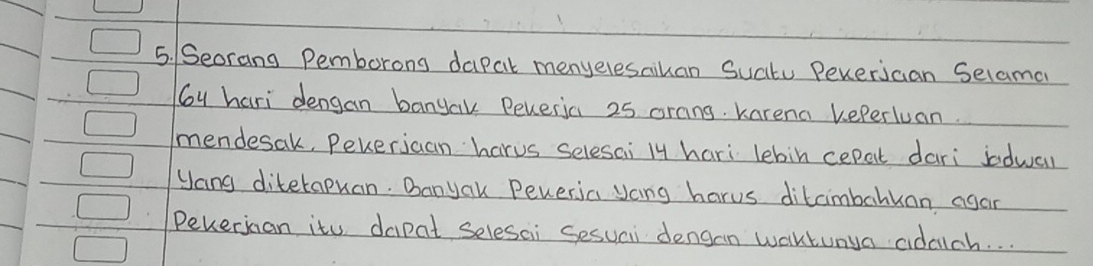 5. Seorang Pemborong dapat menyelesaikan Suatu Pekerjaan Selama
64 hari dengan banyak Pekerja 25 orang. Karena keperluan
mendesak, Pekerjaan harus selesai 14 hari lebih cepat dari jadwal
yang ditetapkan. Banyak Pekerja yang harus ditambahkan agar
Pekerjaan itu dapat Selesai Sesuai dengan waktunya adalah...